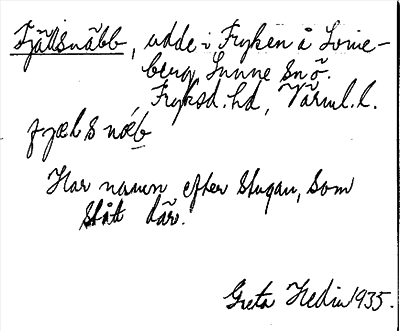 Fjällsnäbb, udde i Fryken å Lövie-
berg Sunne sn ö.
Fryksd. hd, Värml. l.
fjæl s nǽb
Har namn efter stugan, som
stått där.
Greta Hedin 1935.